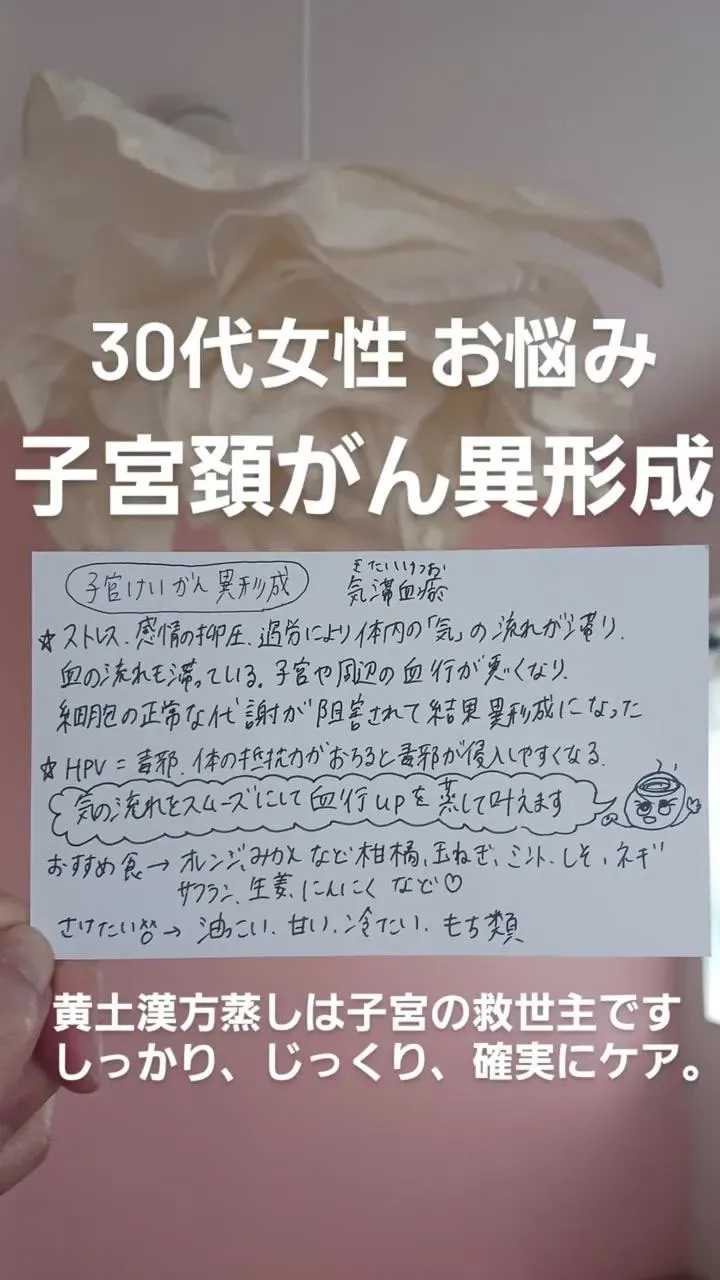 30代女性 お悩み
子宮頚がん異形成
子宮けいがん異形成
きたいけつお
気滞血瘀
☆ ストレス、感情の抑圧、過労により体内の「気」の流れが滞り、
血の流れも滞っている。子宮や周辺の血行が悪くなり、
細胞の正常な代謝が阻害されて結果異形成になった
☆ HPV = 毒邪、体の抵抗力がおちると毒邪が侵入しやすくなる。
気の流れをスムーズにして血行upを蒸して叶えます
おすすめ食→ オレンジ、みかんなど柑橘、玉ねぎ、ミント、しそ、ネギ
サフラン、生姜、にんにく など♡
さけたい → 油っこい、甘い、冷たい、もち類
黄土漢方蒸しは子宮の救世主です
しっかり、じっくり、確実にケア。